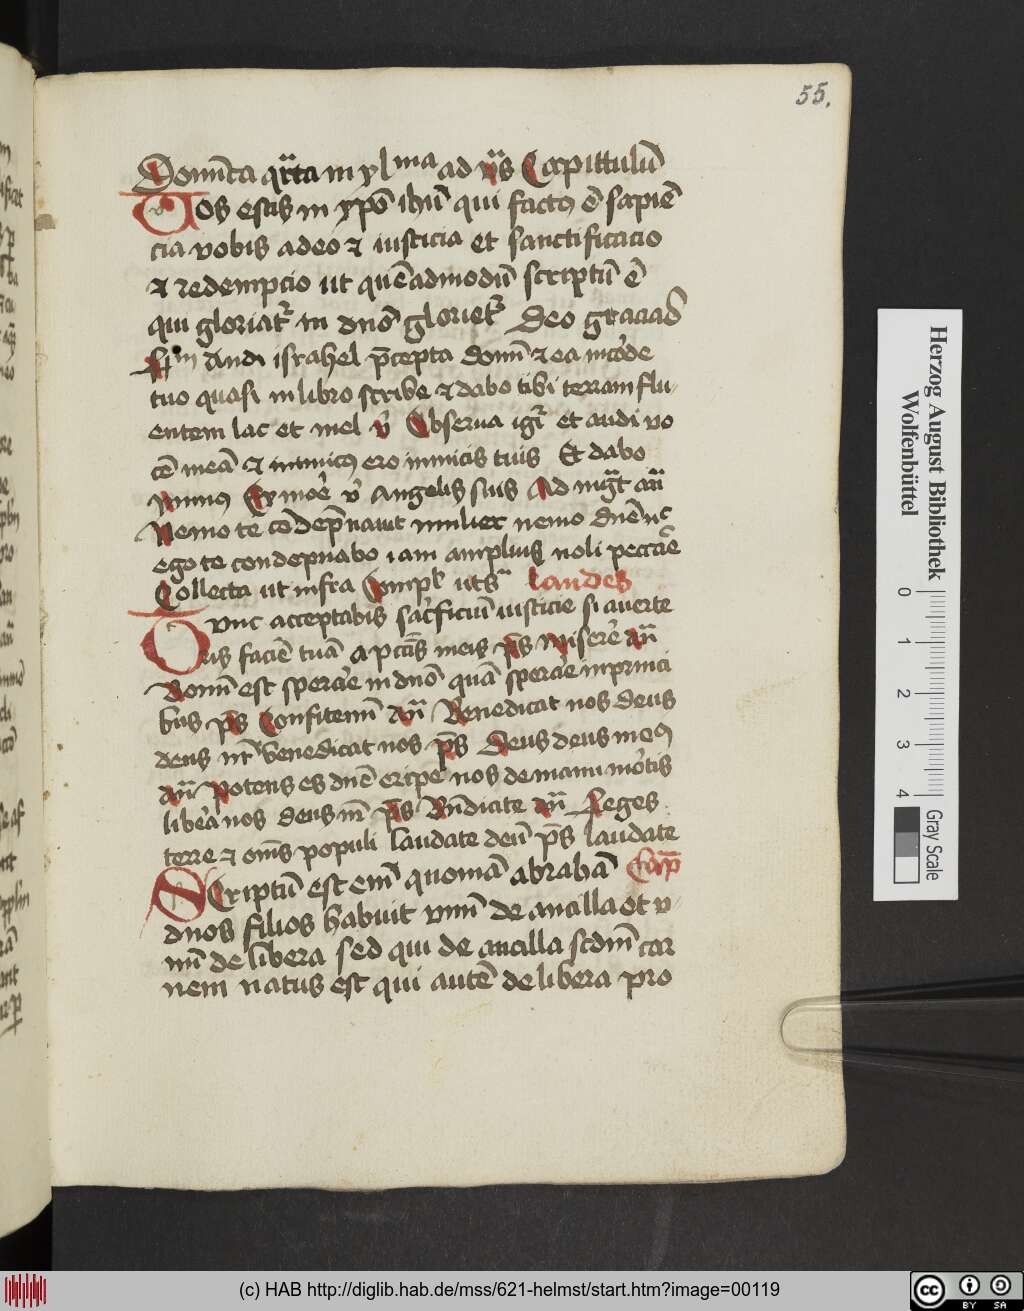 55.
Dom̄ca q̈rta in xl ma ad v̈s Capittulū
Vos estis in xpō ihū qui factꝰ ē sapiē
cia vobis a deo ⁊ iusticia et sanctificacio
⁊ redempcio ut quēadmodū scriptū ē
qui gloriat᷑ in dnō gloriet᷑ Deo gracias
Audi israhel p̄cepta domī ⁊ ea in corde
tuo quasi in libro scribe ⁊ dabo tibi terram flu-
entem lac et mel v̄ Observa igr̄ et audi vo
cē meā ⁊ inimicꝰ ero inimicis tuis Et dabo
Angelis suis Ad mg̅t an̄
Nemo te cōdēpnauit mulier nemo dnē nc̄
ego te condepnabo iam amplius noli peccare
Collecta ut infra Compl̄ ut sᵃ laudes
Tvnc acceptabis sac̄ficiū iusticie si auerte
ris faciē tuā a pcc̄is meis p̄s Miserere an̄
Bonū est sperare in dnō quā sperare in princi
bus p̄s Confitemī an̄ Benedicat nos deus
deus nr̄ benedicat nos p̄s Deus deus meꝰ
an̄ Potens es dnē eripe nos de manu mortis
libera nos deus nr̄ p̄s Bn̄dicite an̄ Reges
terre ⁊ om̄s populi laudate deū p̄s laudate
Scriptū est em̄ quoniā abrahā Cap̄
duos filios habuit vnū de ancilla et v-
nū de libera sed qui de ancilla scdm̄ car
nem natus est qui autē de libera pro
Herzog August Bibliothek
Wolfenbüttel
0 1 2 3 4
Gray Scale
(c) HAB http://diglib.hab.de/mss/621-helmst/start.htm?image=00119
cc BY SA